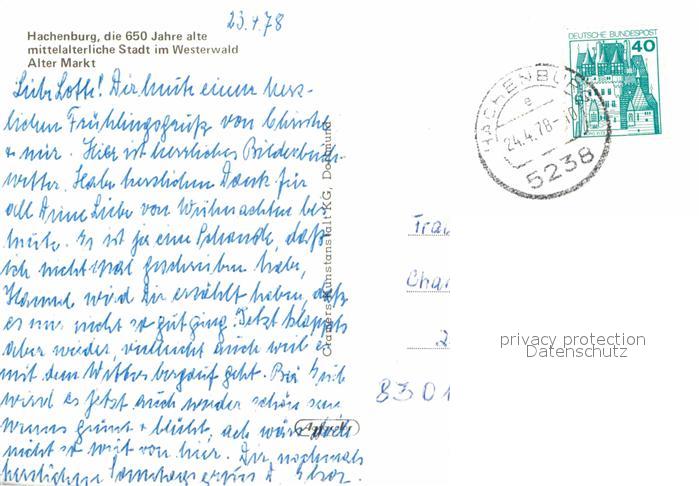 23.4.78
Hachenburg, die 650 Jahre alte
mittelalterliche Stadt im Westerwald
Alter Markt
DEUTSCHE BUNDESPOST
40
HACHENBURG
e
24.4.78-10
5238
Liebe Lotte! Dir heute einen herz-
lichen Frühlingsgruß von Christa
+ mir. Hier ist herrliches Bilderbuch-
wetter. Habe herzlichen Dank für
all Deine Liebe von Weihnachten bis
heute. Es ist ja eine Schande, daß
ich nicht mal geschrieben habe,
Hanne wird Dir erzählt haben, daß
es mir nicht so gut ging. Jetzt klappts
aber wieder, vielleicht auch weil es
mit dem Wetter bergauf geht. Bei Euch
wird es jetzt auch wieder schön sein
wenns grünt + blüht, ach wär's doch
nicht so weit von hier. Dir nochmals
herzlichen Sonntagsgruß
Cramers Kunstanstalt KG, Dortmund
Frau
Char
2
8301
privacy protection
Datenschutz